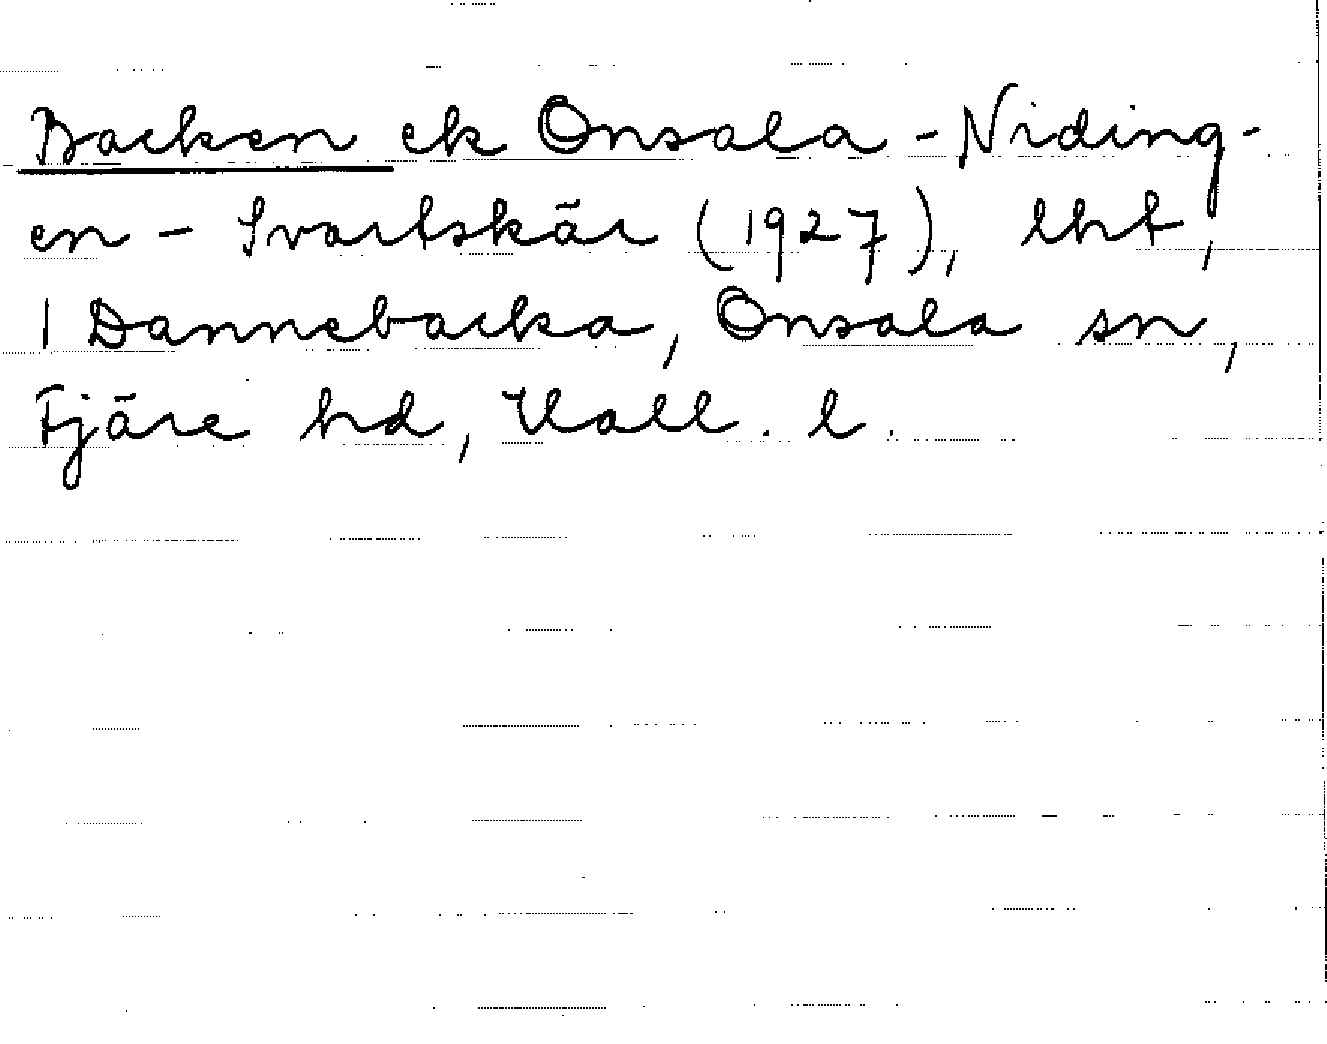 Backen ek Onsala - Niding-
en - Svartskär (1927), lht,
1 Dannebacka, Onsala sn,
Fjäre hd, Hall. l.